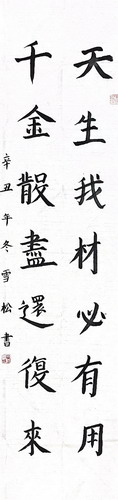 天生我材必有用
千金散盡還復來
辛丑年冬雪松書